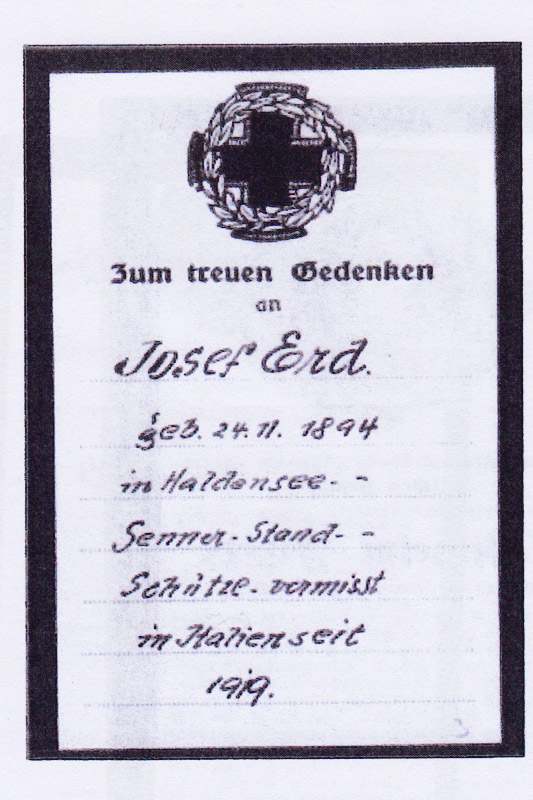 Zum treuen Gedenken
an
Josef Erd.
geb. 24. 11. 1894
in Haldensee. -
Senner - Stand- -
Schütze - vermisst
in Italien seit
1919.